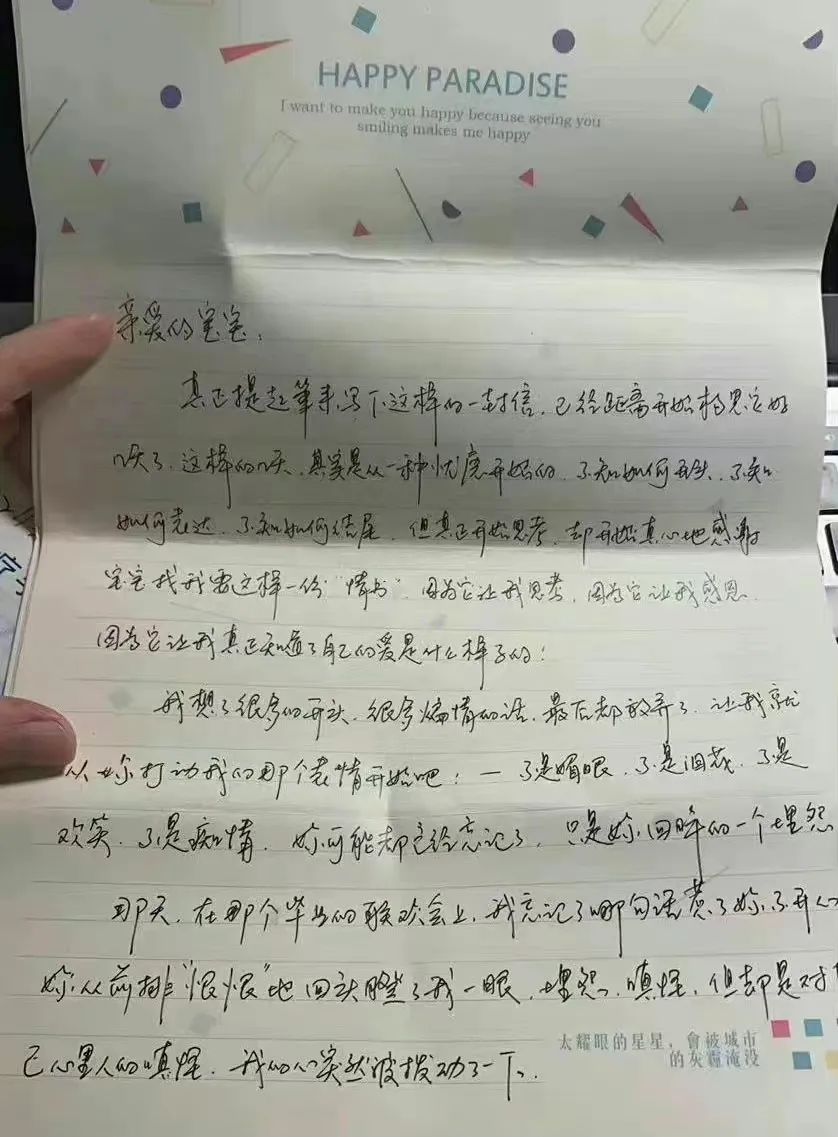 HAPPY PARADISE
I want to make you happy because seeing you
smiling makes me happy
亲爱的宝宝：
真正提起笔来写下这样的一封信，已经距离开始构思它好
几天了，这样的几天，其实是从一种忧虑开始的，不知如何开头，不知
如何表达，不知如何结尾，但真正开始思考，却开始真心地感谢
宝宝找我要这样一份“情书”，因为它让我思考，因为它让我感恩
因为它让我真正知道了自己的爱是什么样子的：
我想了很多的开头，很多煽情的话，最后都放弃了，让我就
从妳打动我的那个表情开始吧：—不是媚眼，不是泪花，不是
欢笑，不是痴情，妳可能都已经忘记了，只是妳回眸的一个埋怨
那天，在那个毕业的联欢会上，我忘记了哪句话惹了妳不开心
妳从前排“恨恨”地回头瞪了我一眼，埋怨，嗔怪，但却是对
己心里人的嗔怪，我的心突然被拨动了一下。
太耀眼的星星，會被城市
的灰霾淹没